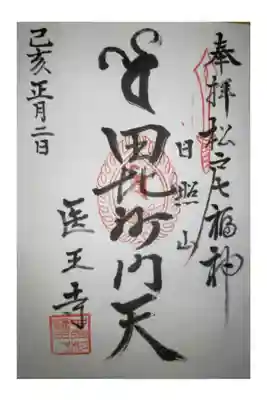 奉拝 松戸七福神
日照山
毘沙門天
医王寺
己亥 正月二日